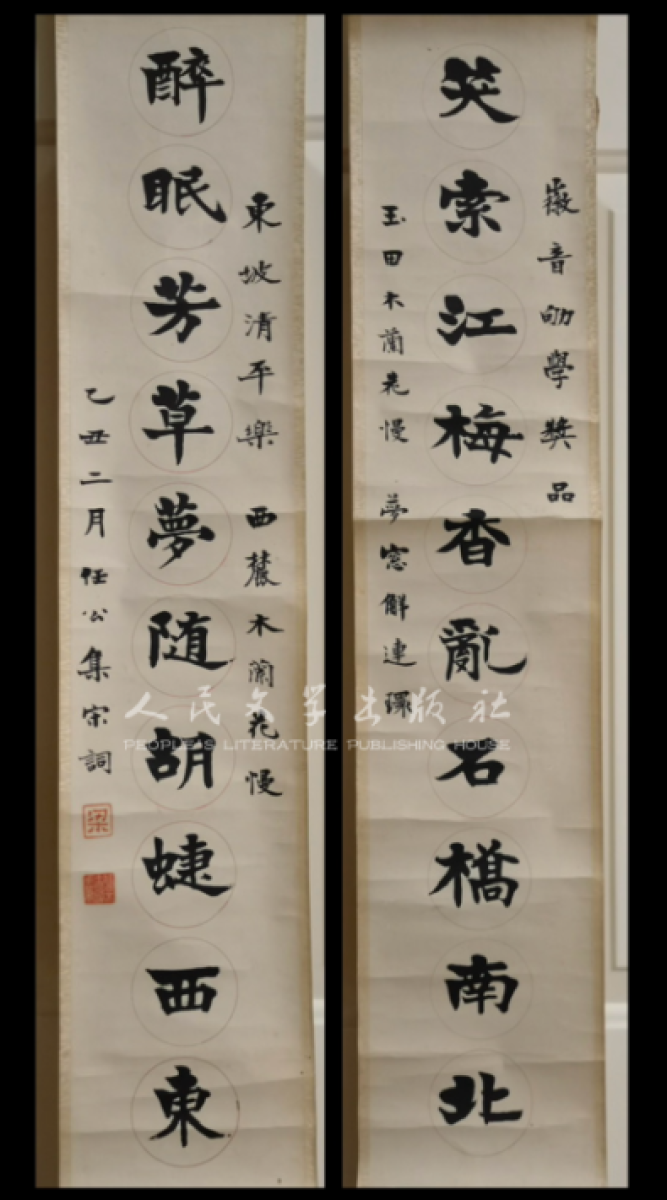 徽音劬學獎品
笑索江梅香亂石橋南北
玉田木蘭花慢 夢窗解連環
東坡清平樂 西麓木蘭花慢
醉眠芳草夢随胡蜨西東
乙丑二月任公集宋詞
梁
人民文学出版社
PEOPLE'S LITERATURE PUBLISHING HOUSE